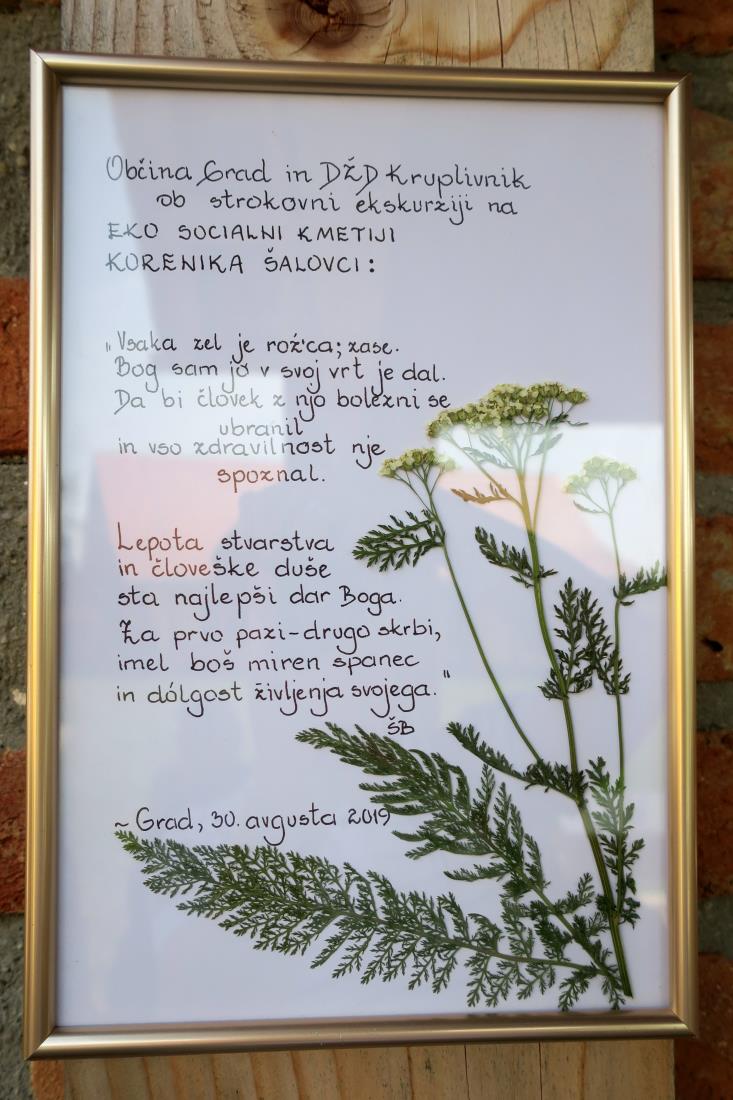 Občina Grad in DŽD Kruplivnik
ob strokovni ekskurziji na
EKO SOCIALNI KMETIJI
KORENIKA ŠALOVCI:
„Vsaka zel je rož'ca; zase.
Bog sam jo v svoj vrt je dal.
Da bi človek z njo bolezni se
ubranil
in vso zdravilnost nje
spoznal.
Lepota stvarstva
in človeške duše
sta najlepši dar Boga.
Za prvo pazi-drugo skrbi,
imel boš miren spanec
in dólgost življenja svojega."
ŠB
~ Grad, 30. avgusta 2019